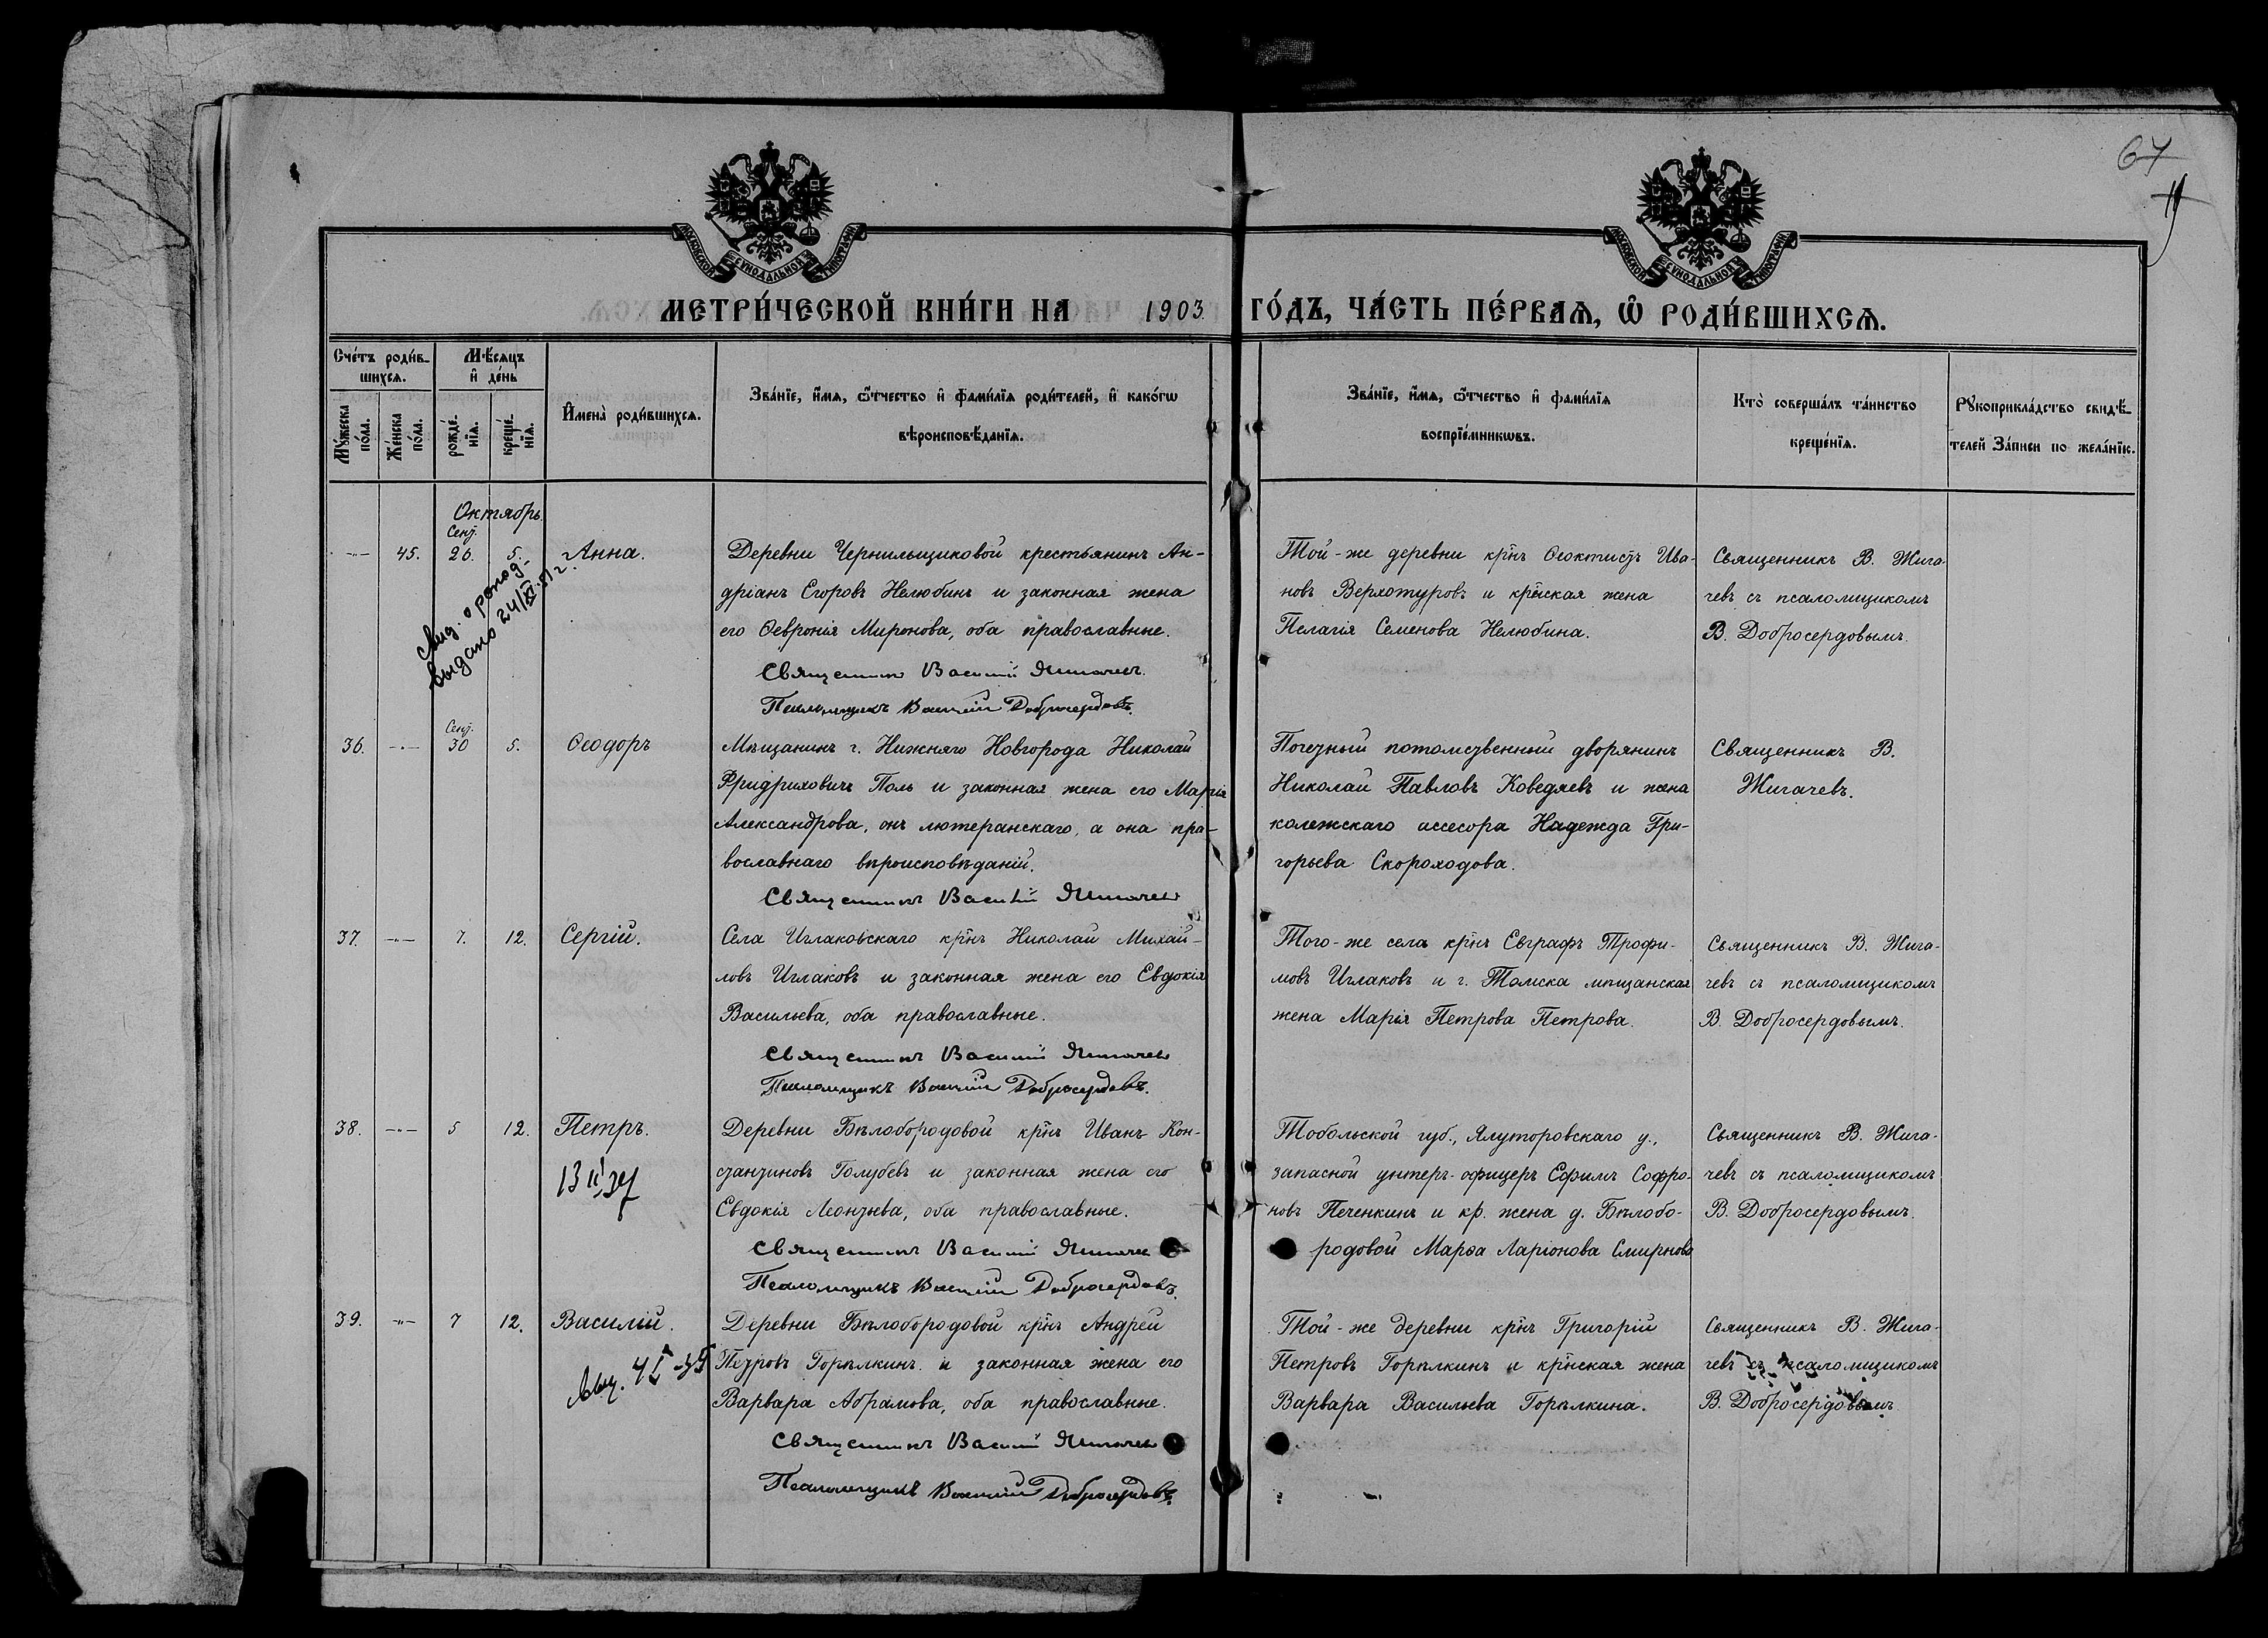 67
МОСКОВСКОЙ СѴНОДАЛЬНОЙ ТИПОГРАФІИ
МОСКОВСКОЙ СѴНОДАЛЬНОЙ ТИПОГРАФІИ
МЕТРИ́ЧЕСКОЙ КНИ́ГИ НА 1903 ГО́ДЪ, ЧА́СТЬ ПЕ́РВАѦ, Ѽ РОДИ́ВШИХСѦ.
Сче́тъ роди́в-
шихсѧ.
Мѣ́сѧцъ
и҆ де́нь
Мꙋ́жеска
по́ла.
Же́нска
по́ла.
рожде́-
нїѧ.
креще́-
нїѧ.
И҆мена̀ роди́вшихсѧ.
Зва́нїе, и҆́мѧ, ѻ҆́тчество и҆ фами́лїѧ роди́телей, и҆ како́гѡ
вѣроисповѣ́данїѧ.
Зва́нїе, и҆́мѧ, ѻ҆́тчество и҆ фами́лїѧ
воспрїе́мникѡвъ.
Кто̀ соверша́лъ та́инство
креще́нїѧ.
Рꙋкоприкла́дство свидѣ́-
телей За́писи по жела́нїю.
Октябрь.
Сент.
-"- 45. 26. 5. Анна.
Деревни Чернильщиковой крестьянинъ Ан-
дріанъ Егоровъ Нелюбинъ и законная жена
его Ѳевронія Миронова, оба православные.
Священникъ Василій Жигачевъ.
Псаломщикъ Василій Добросердовъ.
Той-же деревни крнъ Ѳеоктистъ Ива-
новъ Верхотуровъ и крнская жена
Пелагія Семенова Нелюбина.
Священникъ В. Жига-
чевъ съ псаломщикомъ
В. Добросердовымъ.
выдано 24/XI-51 г.
Сент.
36. -"- 30 5. Ѳеодоръ
Мѣщанинъ г. Нижняго Новгорода Николай
Фридриховичъ Поль и законная жена его Марія
Александрова, онъ лютеранскаго, а она пра-
вославнаго вѣроисповѣданій.
Священникъ Василій Жигачевъ
Почетный потомственный дворянинъ
Николай Павловъ Коведяевъ и жена
колежскаго ассесора Надежда Гри-
горьева Скороходова.
Священникъ В.
Жигачевъ.
37. -"- 7. 12. Сергій.
Села Иглаковскаго крнъ Николай Михай-
ловъ Иглаковъ и законная жена его Евдокія
Васильева, оба православные.
Священникъ Василій Жигачевъ
Псаломщикъ Василій Добросердовъ.
Того-же села крнъ Евграфъ Трофи-
мовъ Иглаковъ и г. Томска мѣщанская
жена Марія Петрова Петрова.
Священникъ В. Жига-
чевъ съ псаломщикомъ
В. Добросердовымъ.
38. -"- 5 12. Петръ.
Деревни Бѣлобородовой крнъ Иванъ Кон-
стантиновъ Голубевъ и законная жена его
Евдокія Леонтьева, оба православные.
Священникъ Василій Жигачевъ
Псаломщикъ Василій Добросердовъ.
Тобольской губ., Ялуторовскаго у.,
запасной унтеръ-офицеръ Ефимъ Софро-
новъ Печенкинъ и кр. жена д. Бѣлобо-
родовой Марѳа Ларіонова Смирнова
Священникъ В. Жига-
чевъ съ псаломщикомъ
В. Добросердовымъ.
39. -"- 7 12. Василій.
Деревни Бѣлобородовой крнъ Андрей
Петровъ Горѣлкинъ и законная жена его
Варвара Абрамова, оба православные.
Священникъ Василій Жигачевъ
Псаломщикъ Василій Добросердовъ.
Той-же деревни крнъ Григорій
Петровъ Горѣлкинъ и крнская жена
Варвара Васильева Горѣлкина.
Священникъ В. Жига-
чевъ съ псаломщикомъ
В. Добросердовымъ